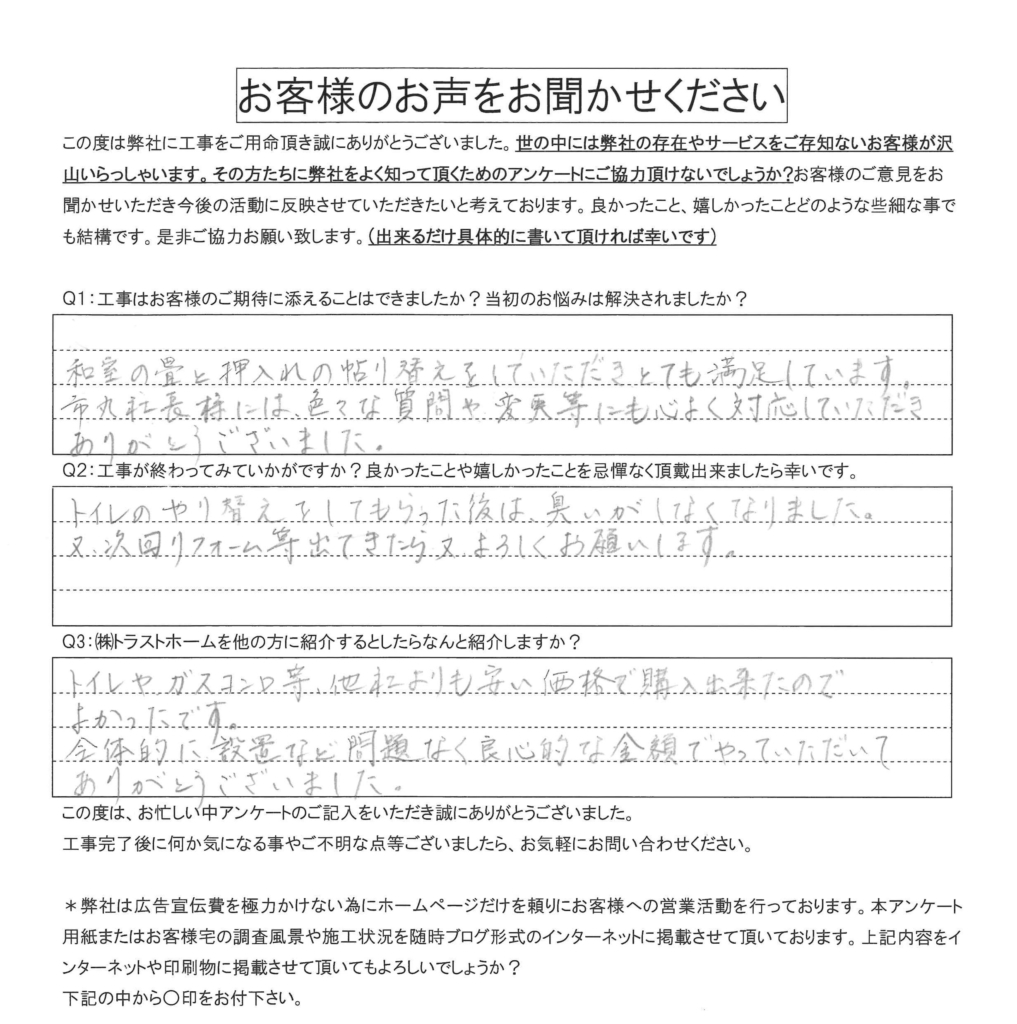 お客様のお声をお聞かせください
この度は弊社に工事をご用命頂き誠にありがとうございました。世の中には弊社の存在やサービスをご存知ないお客様が沢
山いらっしゃいます。その方たちに弊社をよく知って頂くためのアンケートにご協力頂けないでしょうか?お客様のご意見をお
聞かせいただき今後の活動に反映させていただきたいと考えております。良かったこと、嬉しかったことどのような些細な事で
も結構です。是非ご協力お願い致します。(出来るだけ具体的に書いて頂ければ幸いです)
Q1:工事はお客様のご期待に添えることはできましたか?当初のお悩みは解決されましたか?
和室の畳と押入れの帖り替えをしていただきとても満足しています。
市丸社長様には、色々な質問や変更等にも心よく対応していただき
ありがとうございました。
Q2:工事が終わってみていかがですか?良かったことや嬉しかったことを忌憚なく頂戴出来ましたら幸いです。
トイレのやり替えをしてもらった後は、臭いがしなくなりました。
又、次回リフォーム等出てきたら又よろしくお願いします。
Q3:㈱トラストホームを他の方に紹介するとしたらなんと紹介しますか?
トイレやガスコンロ等、他社よりも安い価格で購入出来たので
よかったです。
全体的に設置など問題なく良心的な金額でやっていただいて
ありがとうございました。
この度は、お忙しい中アンケートのご記入をいただき誠にありがとうございました。
工事完了後に何か気になる事やご不明な点等ございましたら、お気軽にお問い合わせください。
＊弊社は広告宣伝費を極力かけない為にホームページだけを頼りにお客様への営業活動を行っております。本アンケート
用紙またはお客様宅の調査風景や施工状況を随時ブログ形式のインターネットに掲載させて頂いております。上記内容をイ
ンターネットや印刷物に掲載させて頂いてもよろしいでしょうか?
下記の中から〇印をお付下さい。